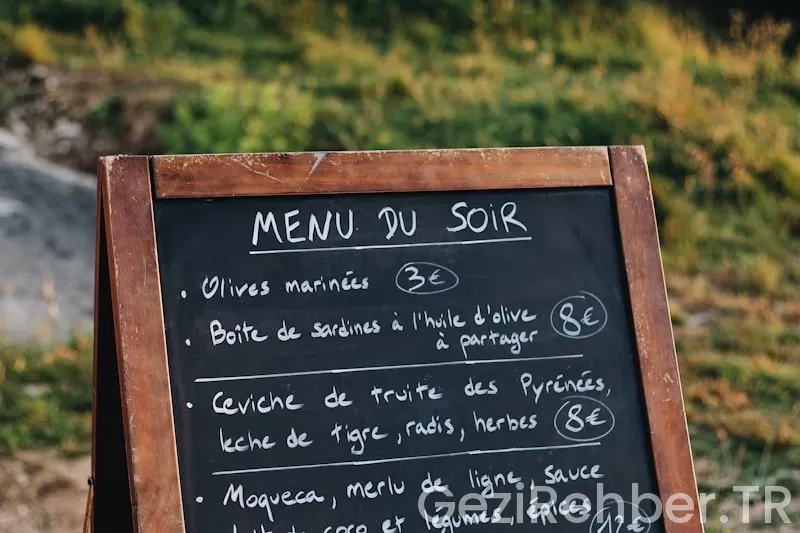 MENU DU SOIR
• Olives marinées 3€
• Boîte de sardines à l'huile d'olive
à partager 8€
• Ceviche de truite des Pyrénées,
leche de tigre, radis, herbes 8€
• Moqueca, merlu de ligne, sauce
coco et légumes épices
GeziRehber.TR